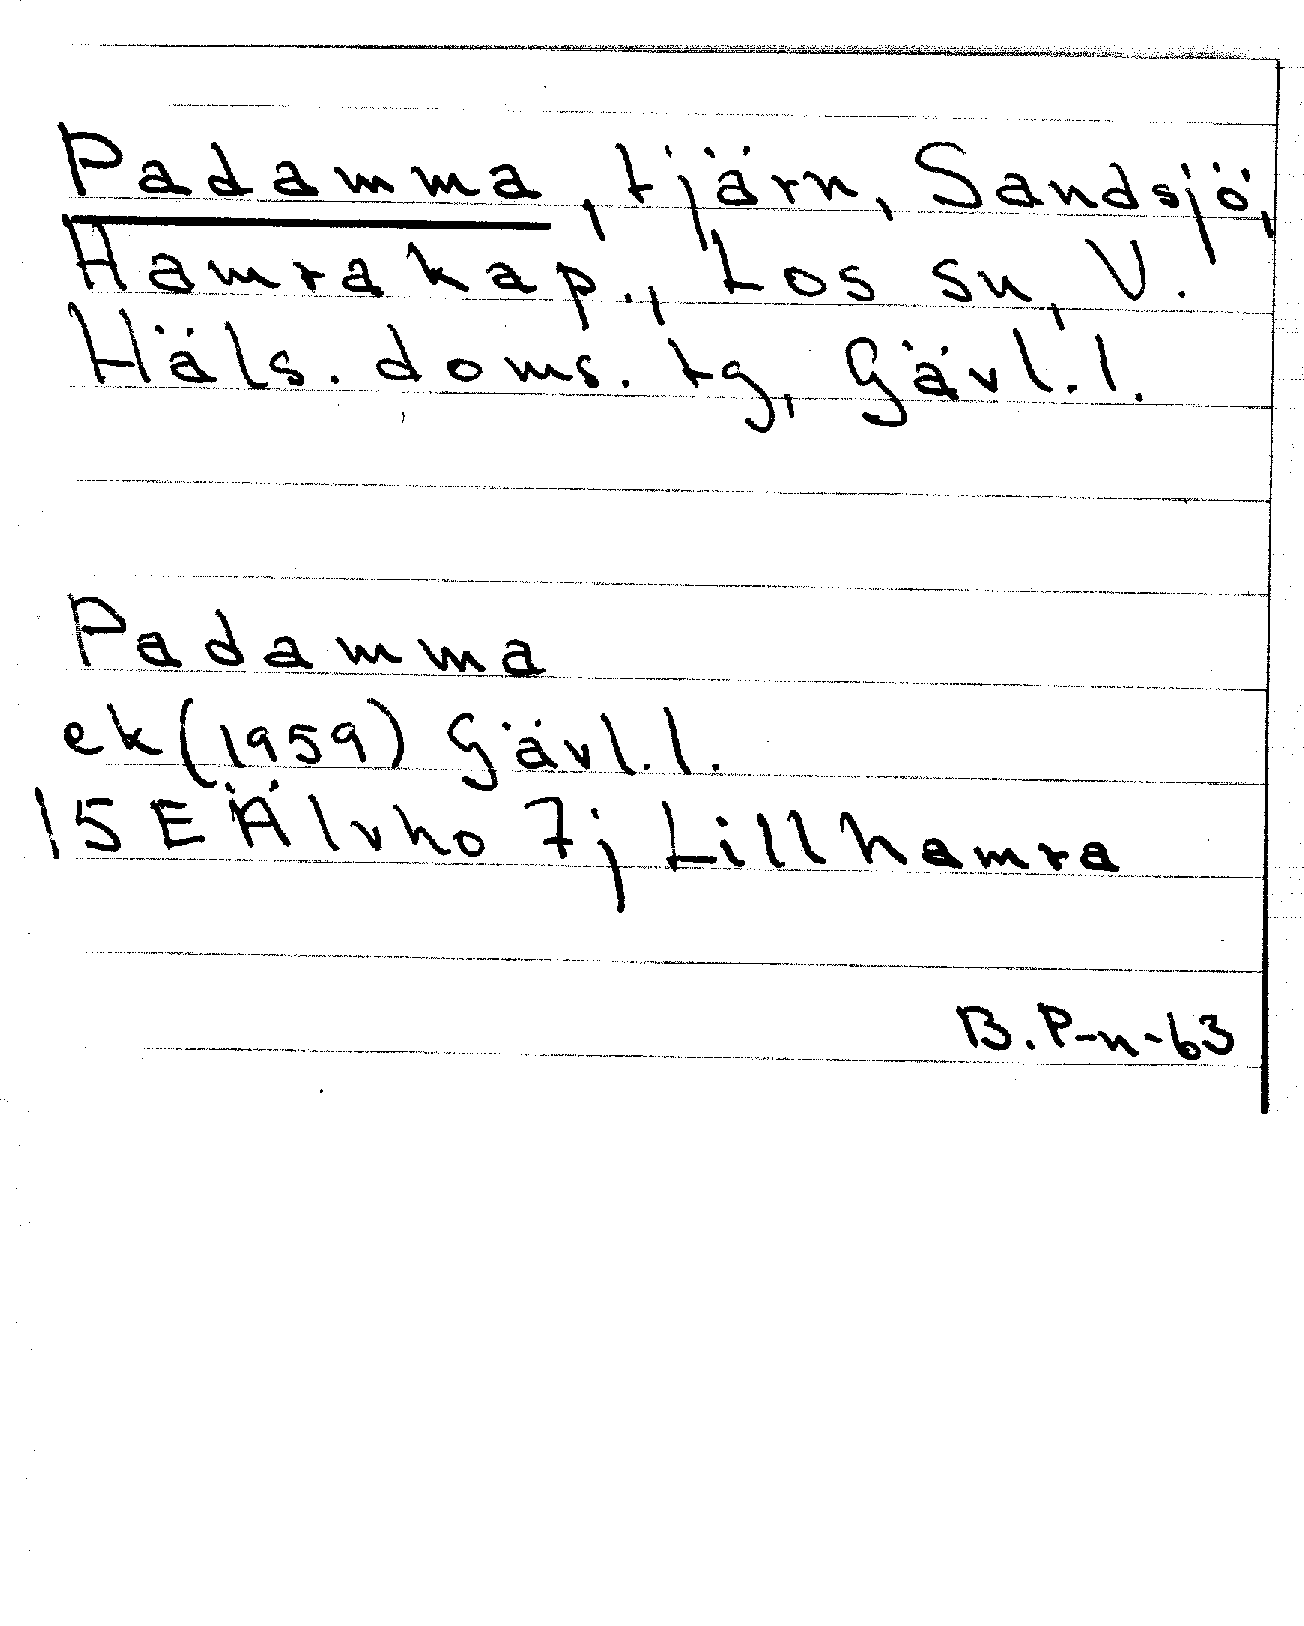 Padamma, tjärn, Sandsjö,
Hamra kap., Los sn, V.
Häls. doms. tg, Gävl. l.
Padamma
ek (1959) Gävl. l.
15 E Älvho 7j Lillhamra
B. P-n-63